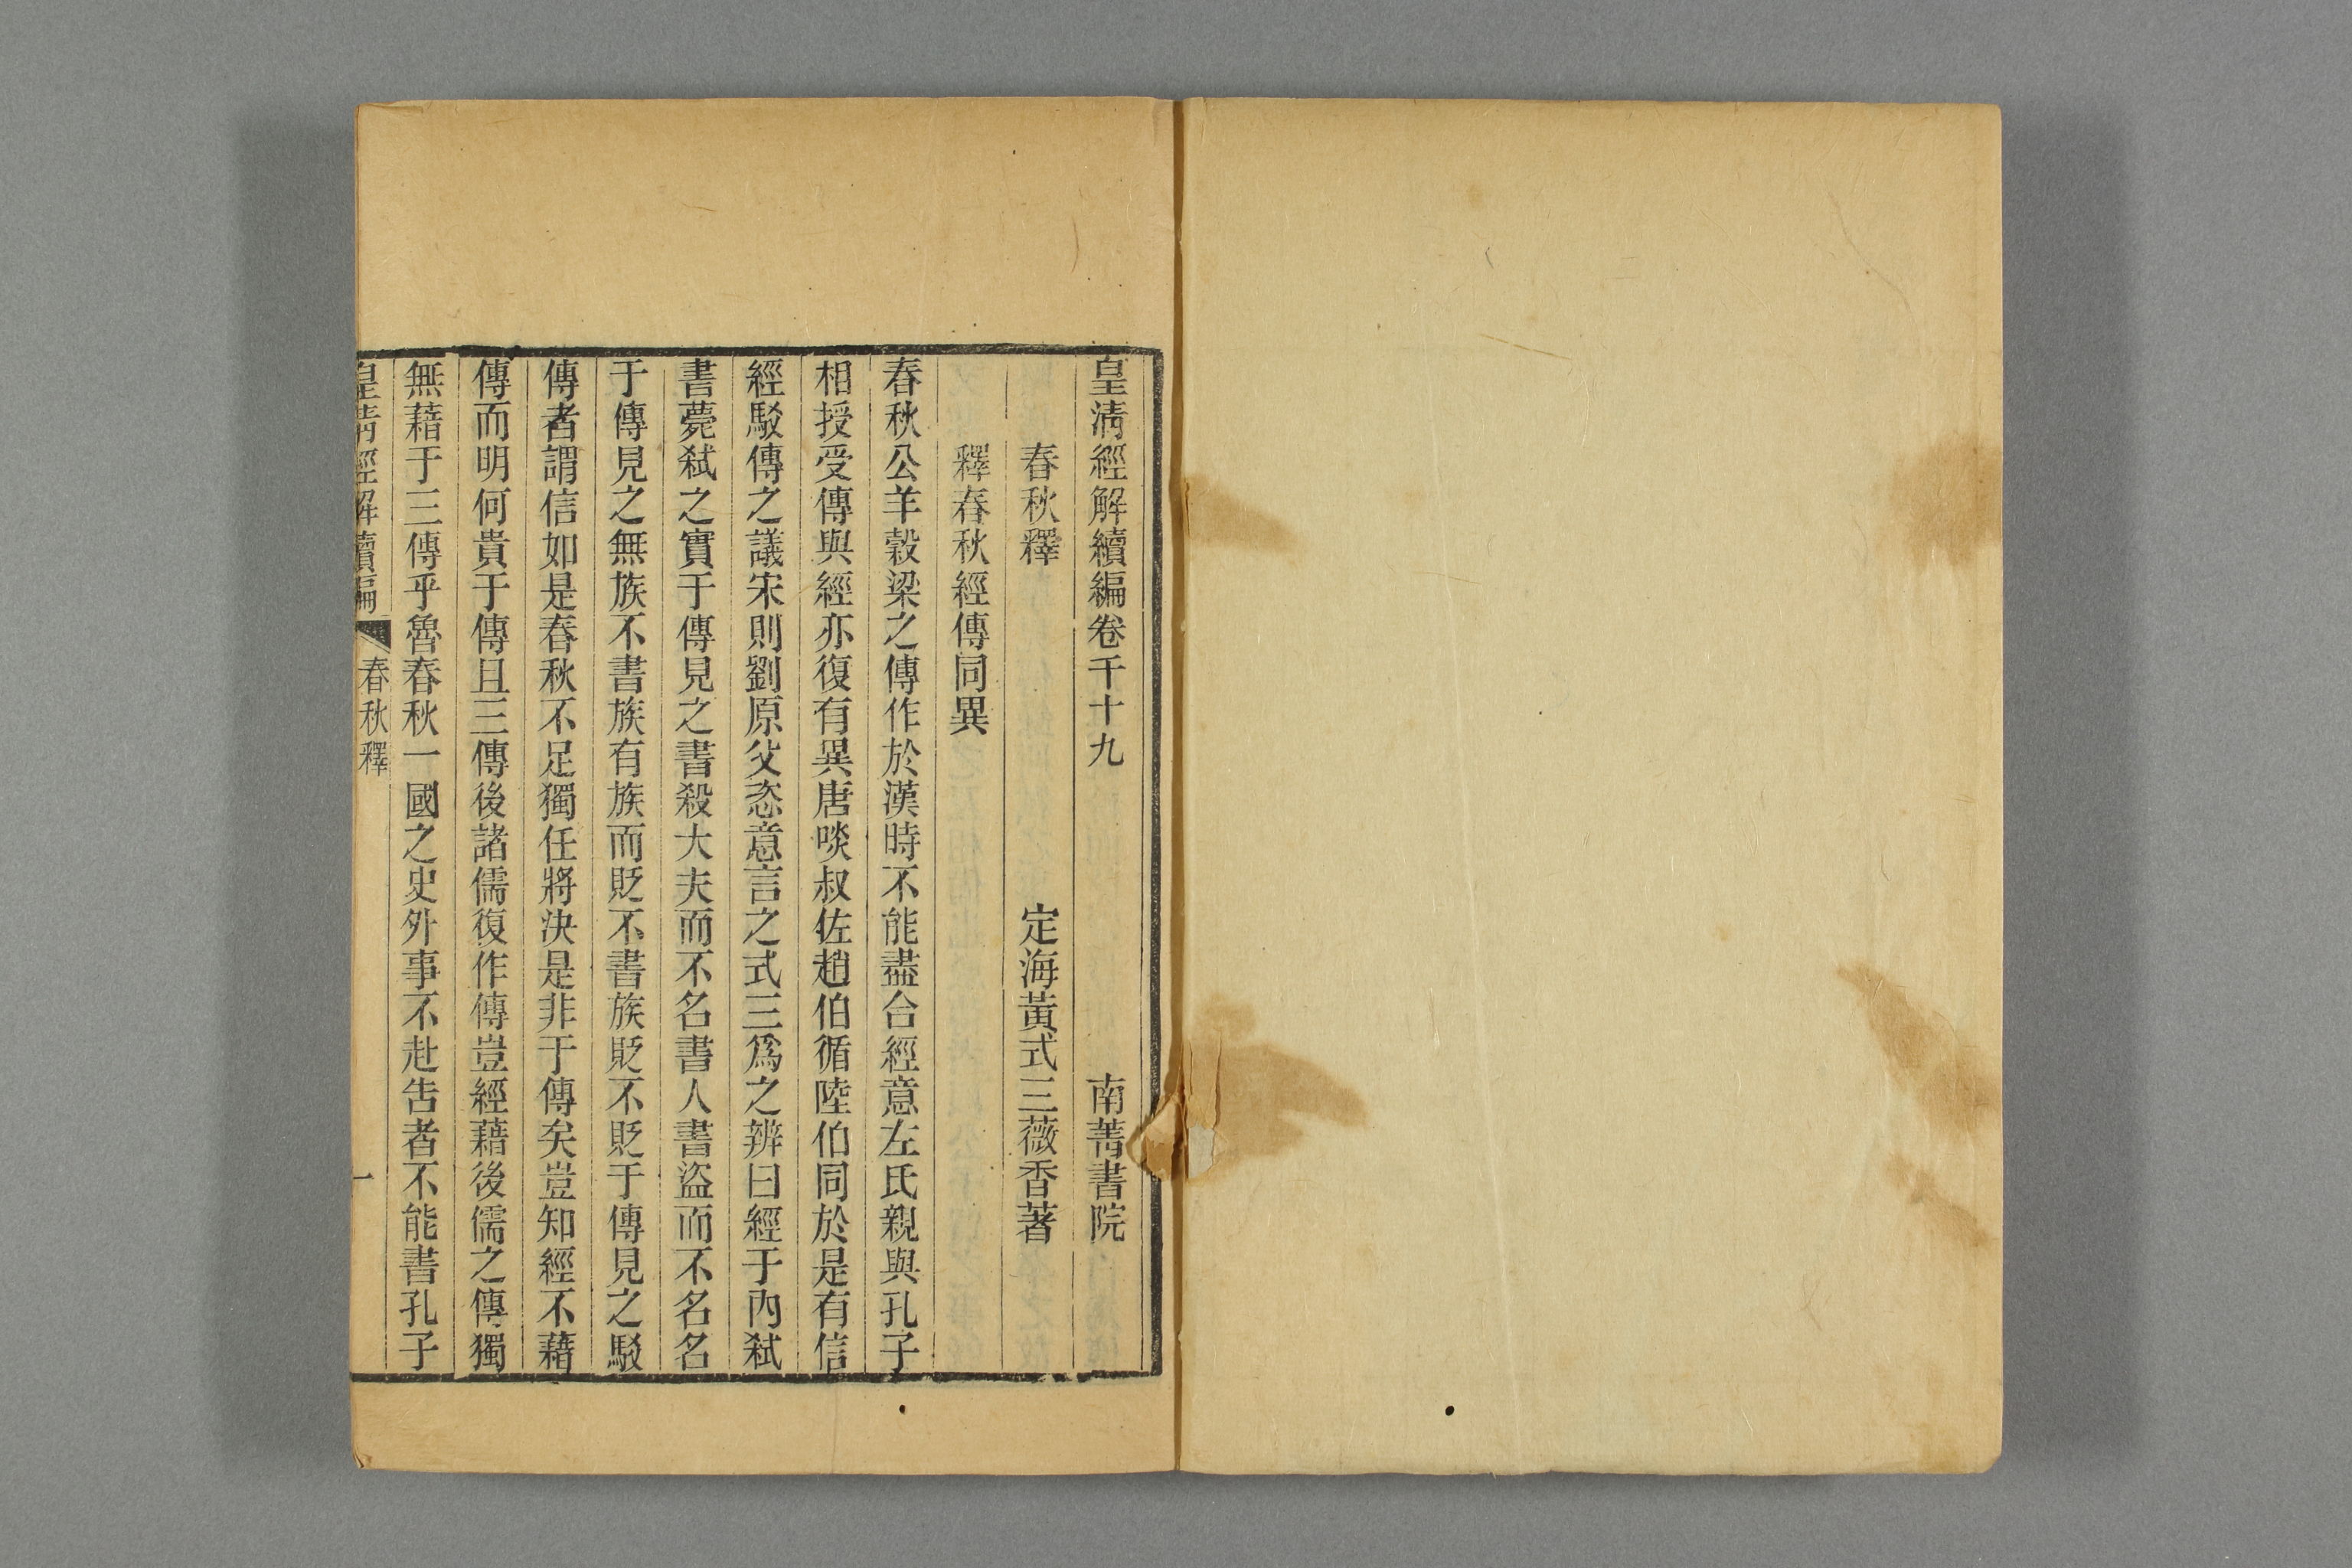 皇淸經解續編卷千十九 南菁書院
春秋釋 定海黃式三薇香著
釋春秋經傳同異
春秋公羊穀梁之傳作於漢時不能盡合經意左氏親與孔子
相授受傳與經亦復有異唐啖叔佐趙伯循陸伯同於是有信
經駁傳之議宋則劉原父恣意言之式三爲之辨曰經于內弑
書薨弑之實于傳見之書殺大夫而不名書人書盜而不名名
于傳見之無族不書族有族而貶不書族貶不貶于傳見之駁
傳者謂信如是春秋不足獨任將決是非于傳矣豈知經不藉
傳而明何貴于傳且三傳後諸儒復作傳豈經藉後儒之傳獨
無藉于三傳乎魯春秋一國之史外事不赴告者不能書孔子
皇淸經解續編 春秋釋 一